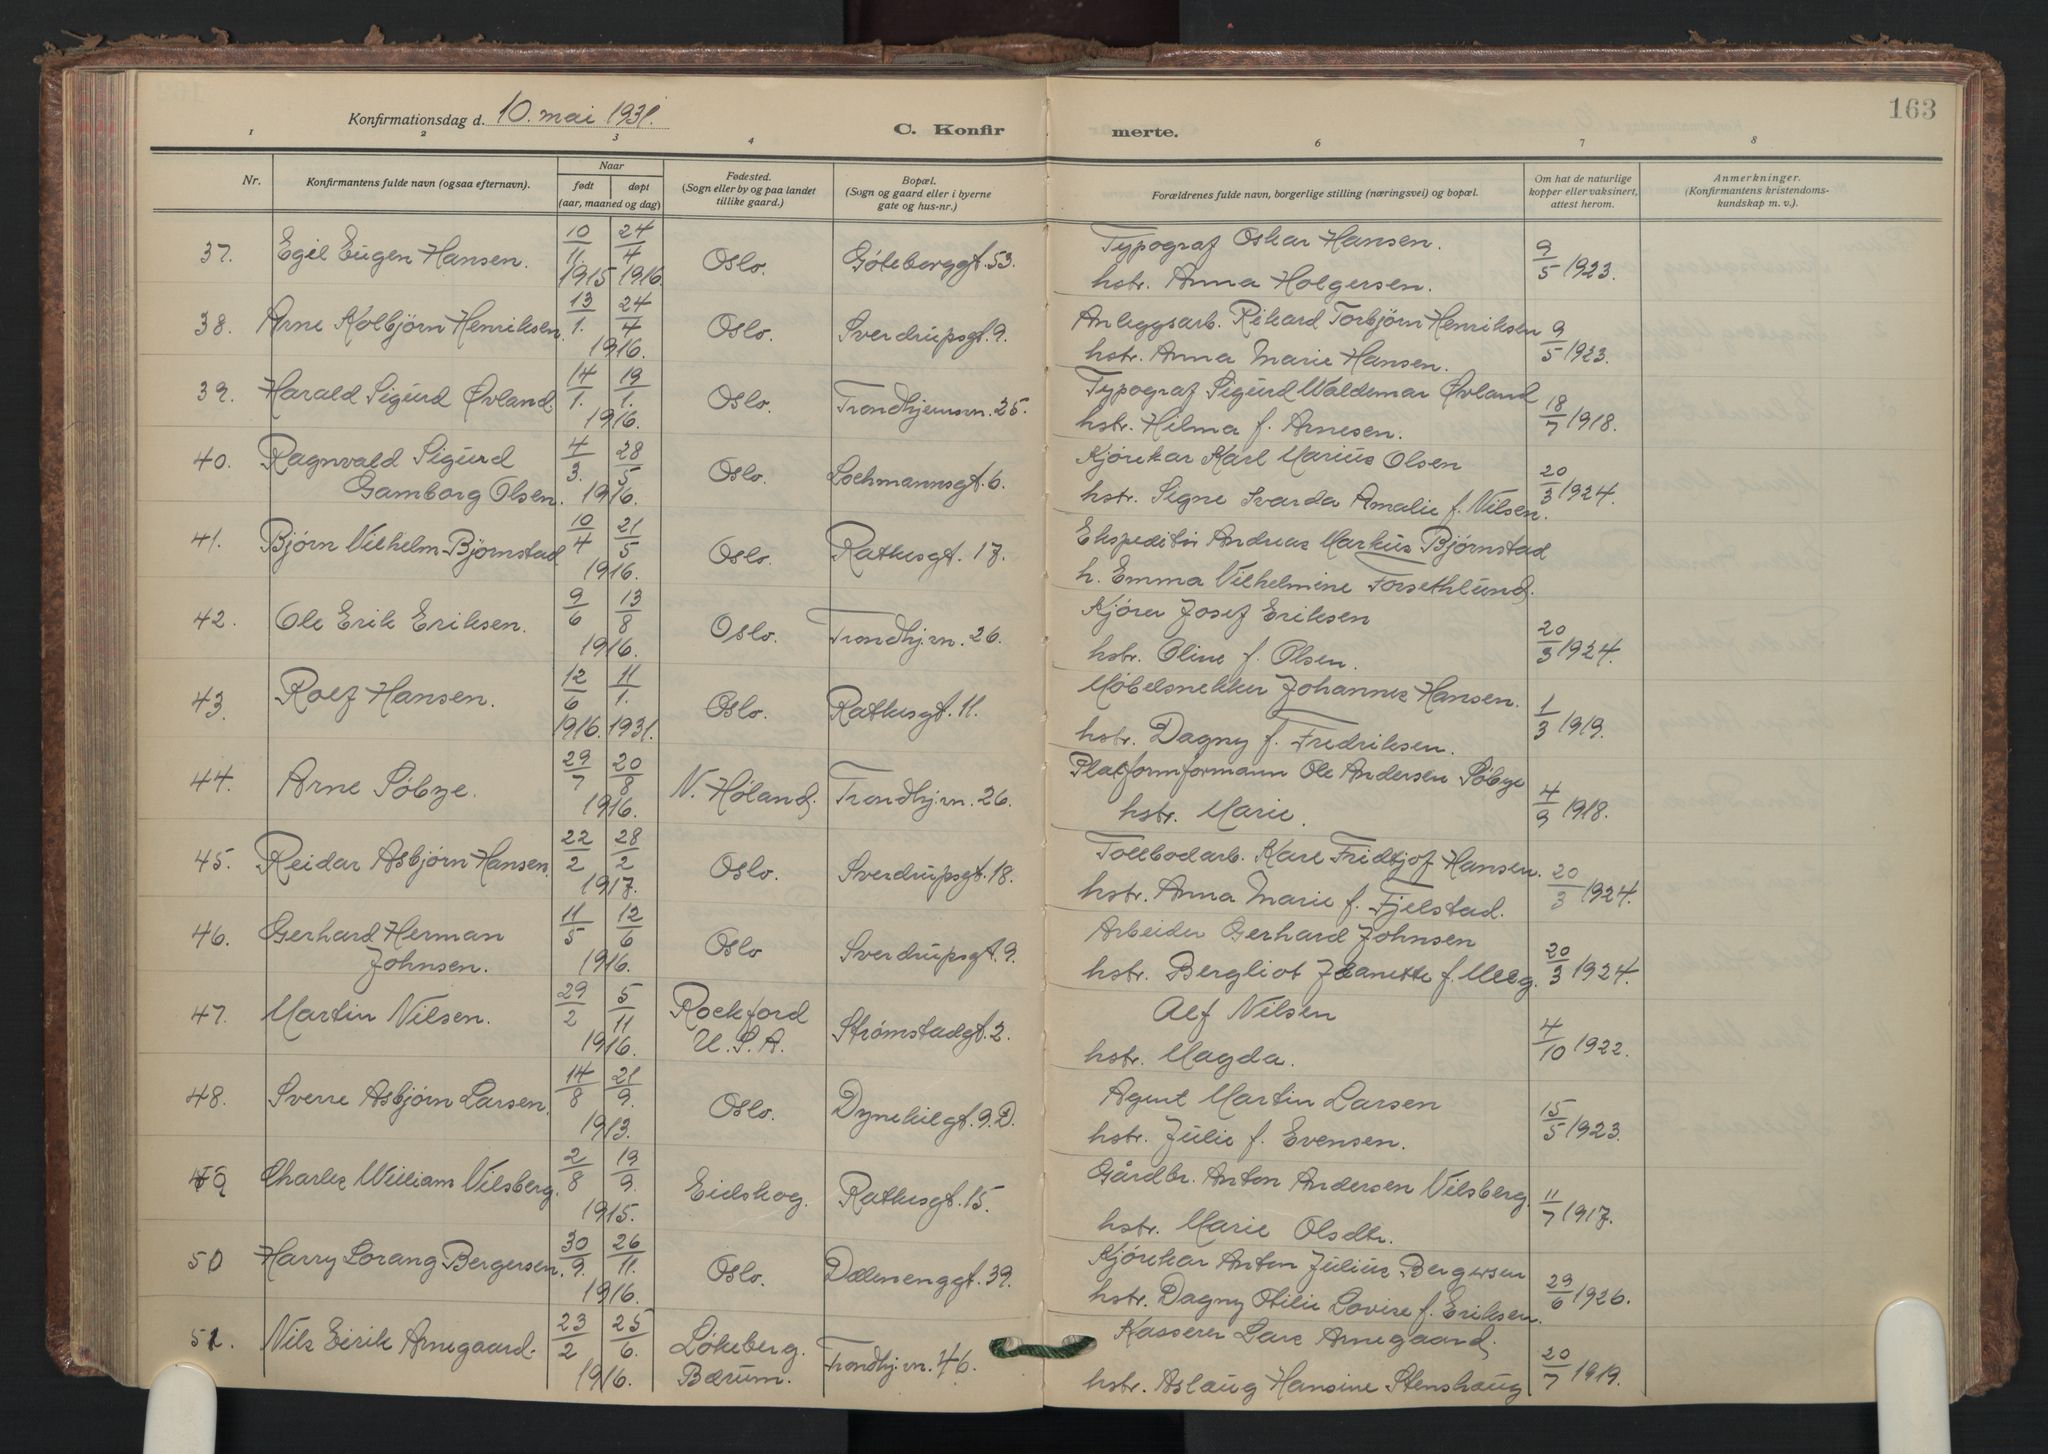 163
Konfirmationsdag d. 10. mai 1931.
C. Konfirmerte.
1 2 3 4 6 7 8
Nr. Konfirmantens fulde navn (ogsaa efternavn). Naar født døpt (aar, maaned og dag) Fødested. (Sogn eller by og paa landet tillike gaard.) Bopæl. (Sogn og gaard eller i byerne gate og hus-nr.) Forældrenes fulde navn, borgerlige stilling (næringsvei) og bopæl. Om hat de naturlige kopper eller vaksinert, attest herom. Anmerkninger. (Konfirmantens kristendomskundskap m. v.).
37. Egil Eugen Hansen. 10/11 1915 24/4 1916. Oslo. Göteborggt. 53. Typograf Oskar Hansen. 9/5 1923.
hstr. Anna Holgersen.
38. Arne Kolbjørn Henriksen. 13/1. 24/4 1916. Oslo. Sverdrupsgt. 9. Anleggsarb. Rikard Torbjørn Henriksen 9/5 1923.
hstr. Anna Marie Hansen.
39. Harald Sigurd Øvland. 14/1. 19/1. 1916. Oslo. Trondhjemsvn. 25. Typograf Sigurd Waldemar Øvland 18/7 1918.
hstr. Hilma f. Arnesen.
40. Ragnvald Sigurd 4/3. 28/5 1916. Oslo. Lochmannsgt. 6. Kjørekar Karl Marius Olsen 20/3 1924.
Gamborg Olsen. hstr. Signe Svarda Amalie f. Nilsen.
41. Bjørn Vilhelm Bjørnstad. 10/4 21/5 1916. Oslo. Rathusgt. 17. Ekspeditør Andreas Markus Bjørnstad
h. Emma Vilhelmine Forsethlund.
42. Ole Erik Eriksen. 9/6 13/8 1916. Oslo. Trondhj.vn. 26. Kjører Josef Eriksen 20/3 1924.
hstr. Oline f. Olsen.
43. Rolf Hansen. 12/6 1916. 11/1. 1931. Oslo. Rathusgt. 11. Møbelsnekker Johannes Hansen. 1/3 1919.
hstr. Dagny f. Fredriksen.
44. Arne Söbye. 29/7 20/8 1916. N. Høland. Trondhj.vn. 26. Platformformann Ole Andersen Söbye 4/9 1918.
hstr. Marie.
45. Reidar Asbjørn Hansen. 22/2 28/2 1917. Oslo. Sverdrupsgt. 18. Tollbodarb. Karl Fridtjof Hansen. 20/3 1924.
hstr. Anna Marie f. Fjelstad.
46. Gerhard Herman 11/5 12/6 1916. Oslo Sverdrupsgt. 9. Arbeider Gerhard Johnsen 20/3 1924.
Johnsen. hstr. Bergliot Jeanette f. Meeg.
47. Martin Nilsen. 29/2 5/11 1916. Rockford Strømstadgt. 2. Alf Nilsen 4/10 1922.
U. S. A. hstr. Magda.
48. Sverre Asbjørn Larsen. 14/8 21/9. 1913. Oslo. Dynekilgt. 9. D. Agent Martin Larsen 15/5 1923.
hstr. Julie f. Evensen.
49 Charles William Vilsberg. 2/8 19/9. 1915. Eidskog. Rathusgt. 15. Gårdbr. Anton Andersen Vilsberg. 11/7 1917.
hstr. Marie Olsdtr.
50 Harry Lorang Bergersen. 30/9. 26/11. 1916. Oslo. Dælenenggt. 39. Kjørekar Anton Julius Bergersen 29/6 1926.
hstr. Dagny Otilie Lovise f. Eriksen.
51. Nils Eirik Arnegaard. 23/2 25/6. 1916. Løkeberg. Trondhj.vn. 46. Kasserer Lars Arnegaard. 20/7 1919.
Bærum. hstr. Aslaug Hansine Stenshaug